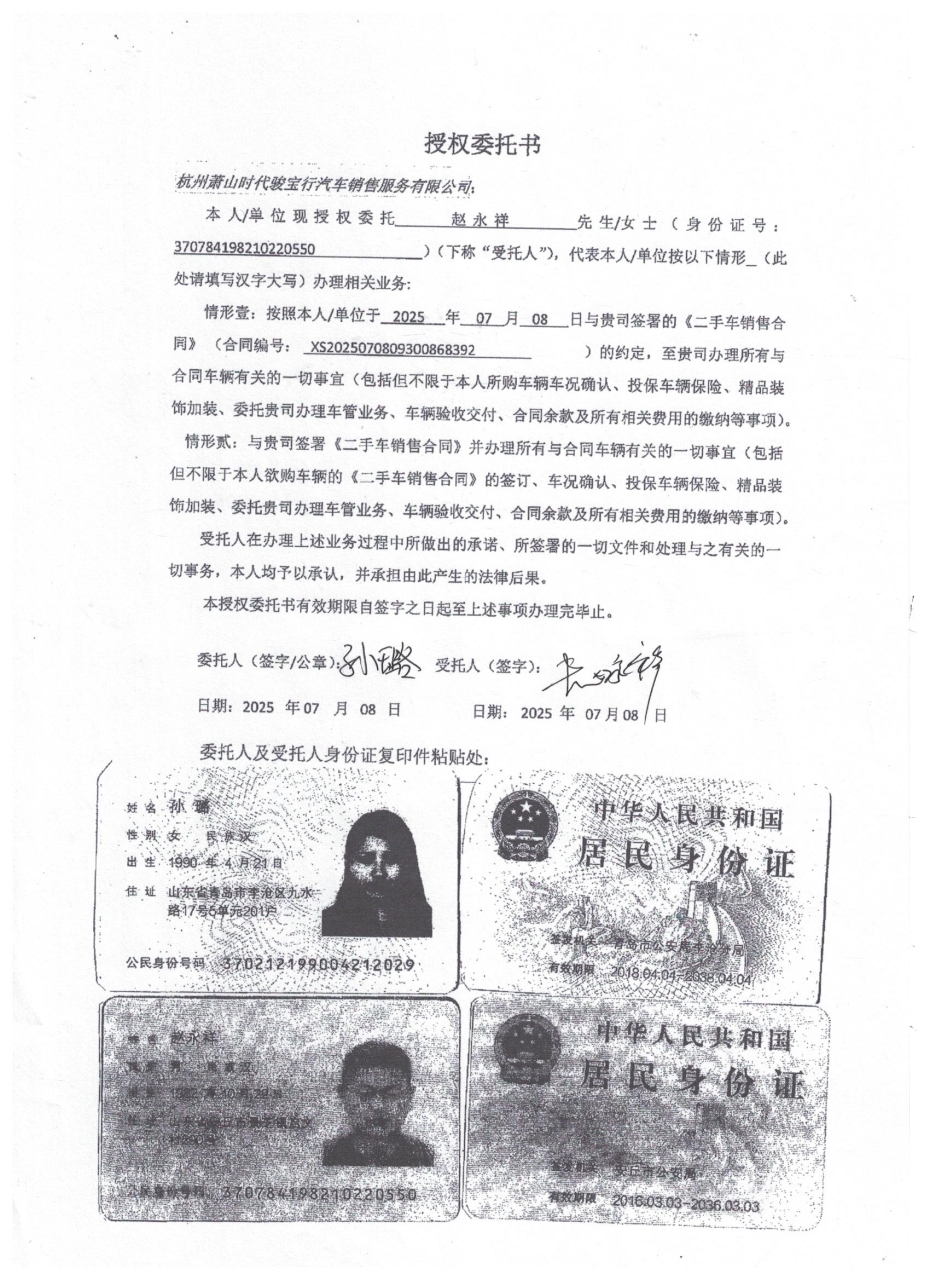 授权委托书
杭州萧山时代骏宝行汽车销售服务有限公司:
本人/单位现授权委托 赵永祥 先生/女士(身份证号:
370784198210220550 )(下称“受托人”),代表本人/单位按以下情形_(此
处请填写汉字大写)办理相关业务:
情形壹:按照本人/单位于 2025 年 07 月 08 日与贵司签署的《二手车销售合
同》(合同编号: XS2025070809300868392 )的约定,至贵司办理所有与
合同车辆有关的一切事宜(包括但不限于本人所购车辆车况确认、投保车辆保险、精品装
饰加装、委托贵司办理车管业务、车辆验收交付、合同余款及所有相关费用的缴纳等事项)。
情形贰:与贵司签署《二手车销售合同》并办理所有与合同车辆有关的一切事宜(包括
但不限于本人欲购车辆的《二手车销售合同》的签订、车况确认、投保车辆保险、精品装
饰加装、委托贵司办理车管业务、车辆验收交付、合同余款及所有相关费用的缴纳等事项)。
受托人在办理上述业务过程中所做出的承诺、所签署的一切文件和处理与之有关的一
切事务,本人均予以承认,并承担由此产生的法律后果。
本授权委托书有效期限自签字之日起至上述事项办理完毕止。
委托人(签字/公章):孙璐 受托人(签字): 赵永祥
日期:2025 年 07 月 08 日 日期: 2025 年 07 月 08 日
委托人及受托人身份证复印件粘贴处:
姓名 孙璐
性别 女 民族 汉
出生 1990 年 4 月 21 日
住址 山东省青岛市李沧区九水
路17号5单元201户
公民身份号码 370212199004212029
中华人民共和国
居民身份证
签发机关 青岛市公安局
有效期限 2018.04.04-2038.04.04
姓名 赵永祥
性别 男 民族 汉
公民身份号码 370784198210220550
中华人民共和国
居民身份证
签发机关 安丘市公安局
有效期限 2016.03.03-2036.03.03